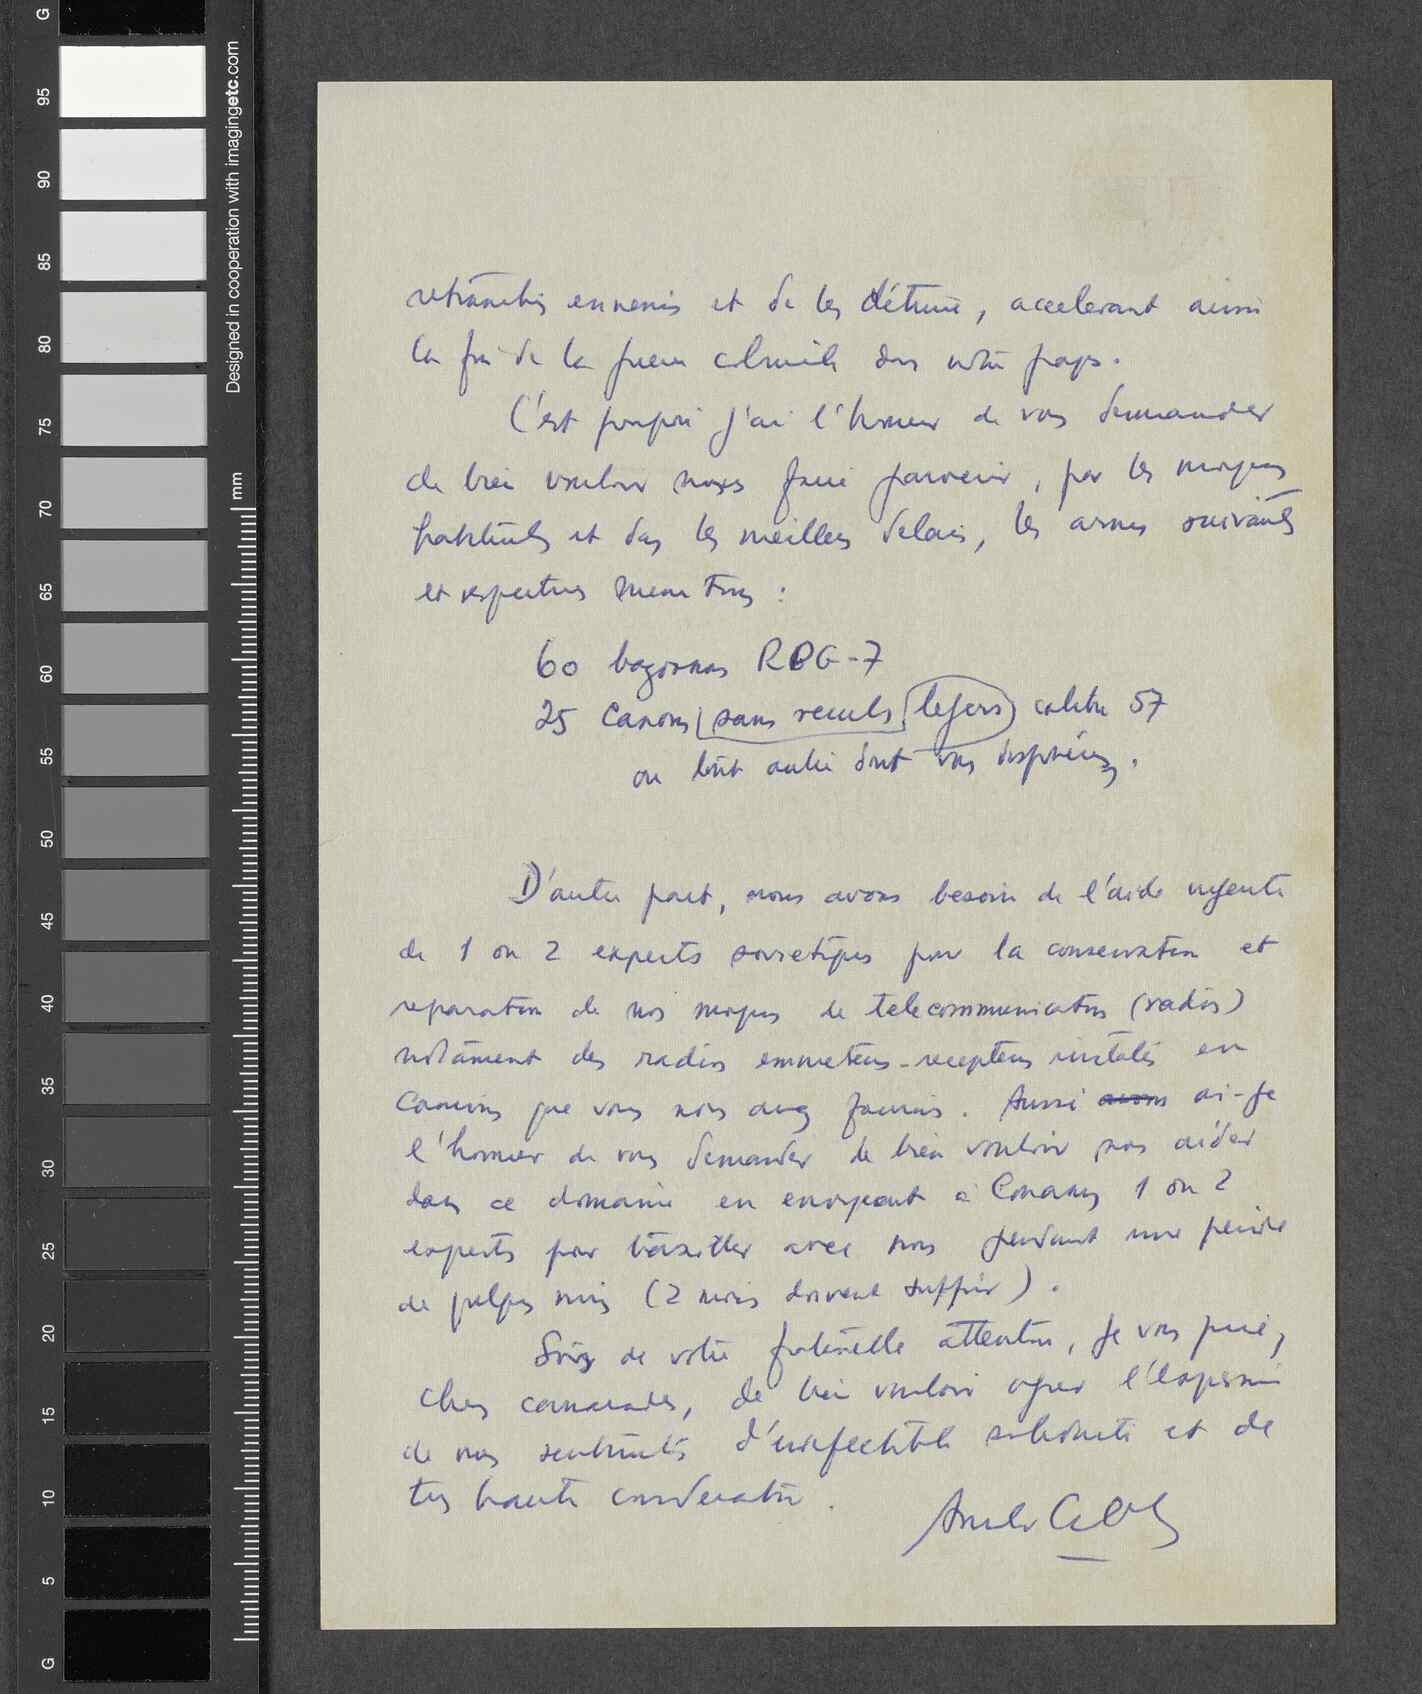 retranchés ennemis et de les détruire, accelerant ainsi
la fin de la guerre coloniale dans notre pays.
C'est pourquoi j'ai l'honneur de vous demander
de bien vouloir nous faire parvenir, par les moyens
habituels et dans les meilleurs delais, les armes suivantes
et respectives munitions :
60 bazookas RPG-7
25 Canons sans reculs legers calibre 57
ou tout autre dont vous disposerez.
D'autre part, nous avons besoin de l'aide urgente
de 1 ou 2 experts sovietiques pour la conservation et
reparation de nos moyens de telecommunications (radios)
notament des radios emmeteurs-recepteurs installés en
Camions que vous nous avez fournis. Aussi avons ai-je
l'honneur de vous demander de bien vouloir nous aider
dans ce domaine en envoyant à Conakry 1 ou 2
experts pour travailler avec nous pendant une periode
de quelques mois (2 mois doivent suffire).
de votre fraternelle attention, je vous prie,
Chers camarades, de bien vouloir agreer l'expression
de nos sentiments d'indefectible solidarité et de
très haute consideration.
Amilcar Cabral
G
95
90
85
80
75
70
65
60
55
50
45
40
35
30
25
20
15
10
5
G
mm
Designed in cooperation with imagingetc.com